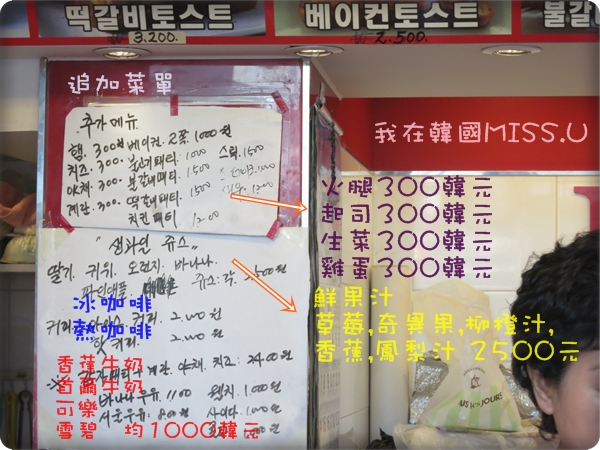 떡갈비토스트
베이컨토스트
불갈
3.200.
2.500.
追加菜單
추가메뉴
햄. 300원 베이컨 2쪽 1000원
치즈. 300. 불고기패티. 1000 스틱. 1500
야채. 300. 불갈비패티. 1500
계란. 300. 떡갈비패티. 1500
치킨 패티 1200
我在韓國MISS.U
火腿300韓元
起司300韓元
生菜300韓元
雞蛋300韓元
"생과일 쥬스"
딸기. 키위. 오렌지. 바나나.
쥬스: 각. 2,500원
鮮果汁
草莓,奇異果,柳橙汁,
香蕉,鳳梨汁 2500元
冰咖啡
熱咖啡
커피. 2,000원
커피. 2,000
야채. 치즈: 2400원
香蕉牛奶
首爾牛奶
可樂
雪碧 均1000韓元
바나나우유. 1100
서울우유: 800원 사이다